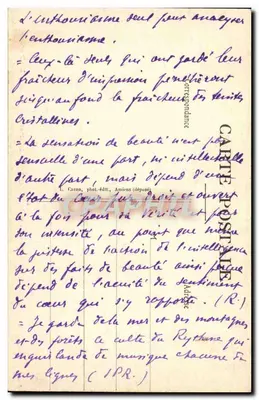 L'enthousiasme seul peut analyser
l'enthousiasme.
= Ceux-là seuls qui ont gardé leur
fraîcheur d'impression pénètreront
jusqu'au fond la fraîcheur des teintes
cristallines.
= La sensation de beauté n'est pas
sensuelle d'une part, ni intellectuelle
d'autre part, mais dépend d'un
état du cœur pur, droit et ouvert
à la fois pour la vérité et pour
son intensité, au point que même
la justesse de l'action de l'intelligence
sur des faits de beauté ainsi
dépend de l'acuité du sentiment
du cœur qui s'y rapporte. (R.)
= Je garde de la mer et des montagnes
et des forêts ce culte du Rythme qui
enguirlande de musique chacune de
mes lignes (SPR.)
CARTE POSTALE
Correspondance
Adresse
C. Caron, phot.-édit., Amiens (déposé)